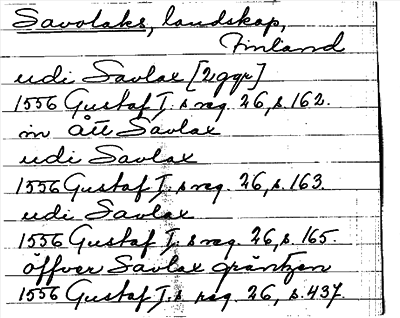 Savolaks, landskap,
Finland
udi Savlax [2 ggr]
1556 Gustaf I:s reg. 26, s. 162.
in ått Savlax
udi Savlax
1556 Gustaf I:s reg. 26, s. 163.
udi Savlax
1556 Gustaf I:s reg. 26, s. 165.
öffver Savlax gräntzen
1556 Gustaf I:s reg. 26, s. 437.